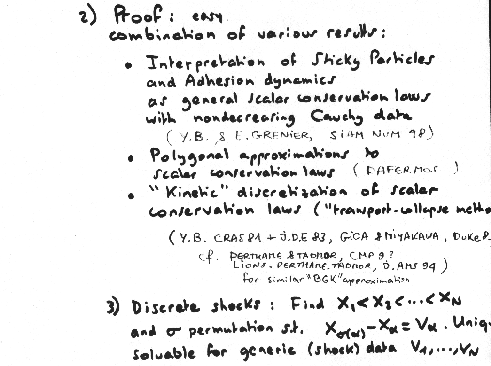 2) Proof : easy
combination of various results :
• Interpretation of Sticky Particles
and Adhesion dynamics
as general scalar conservation laws
with nondecreasing Cauchy data
( Y.B. & E. GRENIER, SIAM NUM 98)
• Polygonal approximations to
scalar conservation laws ( DAFERMOS )
• "Kinetic" discretization of scalar
conservation laws ("transport-collapse metho
(Y.B. CRAS 81 + J.D.E 83, GIGA & MIYAKAWA, DUKE
cf. PERTHAME & TADMOR, CMP 9?
LIONS-PERTHAME-TADMOR, J. AMS 94 )
for similar "BGK" approximation
3) Discrete shocks : Find X₁<X₂<...<X_N
and σ permutation s.t. X_σ(α) - X_α = V_α . Uniq
solvable for generic (shock) data V₁,...,V_N